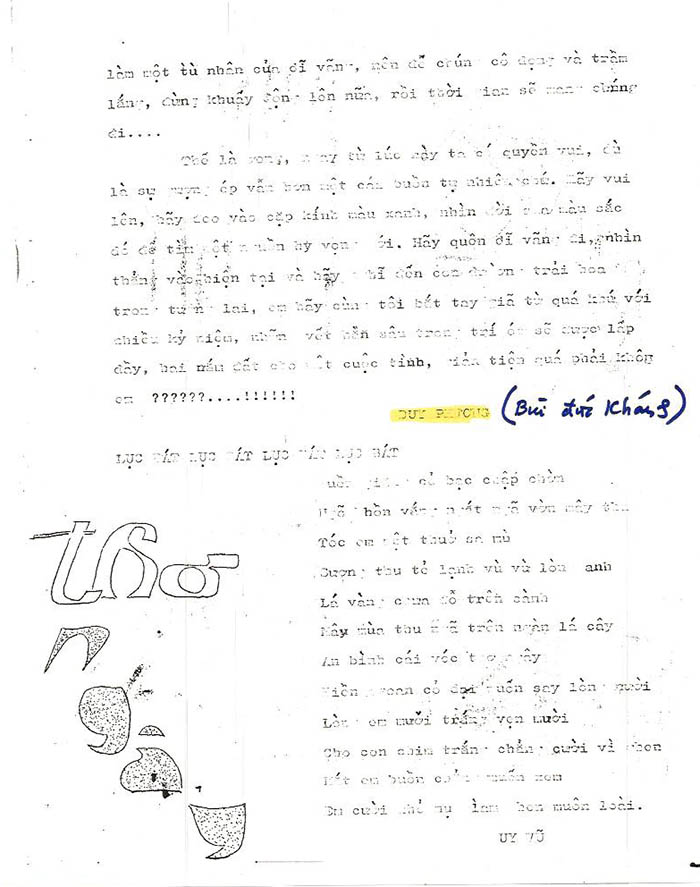 làm một tù nhân của dĩ vãng, nên để chúng cô đọng và trầm
lắng, đừng khuấy động lên nữa, rồi thời gian sẽ mang chúng
đi....
Thế là xong, ngay từ lúc này ta có quyền vui, dù
là sự gượng ép vẫn hơn một cái buồn tự nhiên chứ. Hãy vui
lên, hãy đeo vào cặp kính màu xanh, nhìn đời qua màu sắc
đó để tìm một nguồn hy vọng mới. Hãy quên dĩ vãng đi, nhìn
thẳng vào hiện tại và hãy nghĩ đến con đường trải hoa
trong tương lai, em hãy cùng tôi bắt tay giã từ quá khứ với
nhiều kỷ niệm, những vết hằn sâu trong trí óc sẽ được lấp
đầy, hai nấu đất cho một cuộc tình, giản tiện quá phải không
em ??????....!!!!!!
DUY PHƯƠNG (Bùi đức Kháng)
LỤC BÁT LỤC BÁT LỤC BÁT LỤC BÁT
cỏ bạc chập chờn
hồn vắng ngã vờn mây thu
Tóc em một thuở sa mù
Gượng thu tẻ lạnh vù vù lòng anh
Lá vàng chưa đỗ trên cành
Mây mùa thu ngã trên ngàn lá cây
An bình cái vóc
cổ đại muốn say lòng người
Lòng em mười trắng vẹn mười
Cho con chim trắng chẳng cười vì
Mắt em buồn muốn
Em cười nhỏ nụ làm hơn muôn loài.
UY VŨ
thơ
ngây